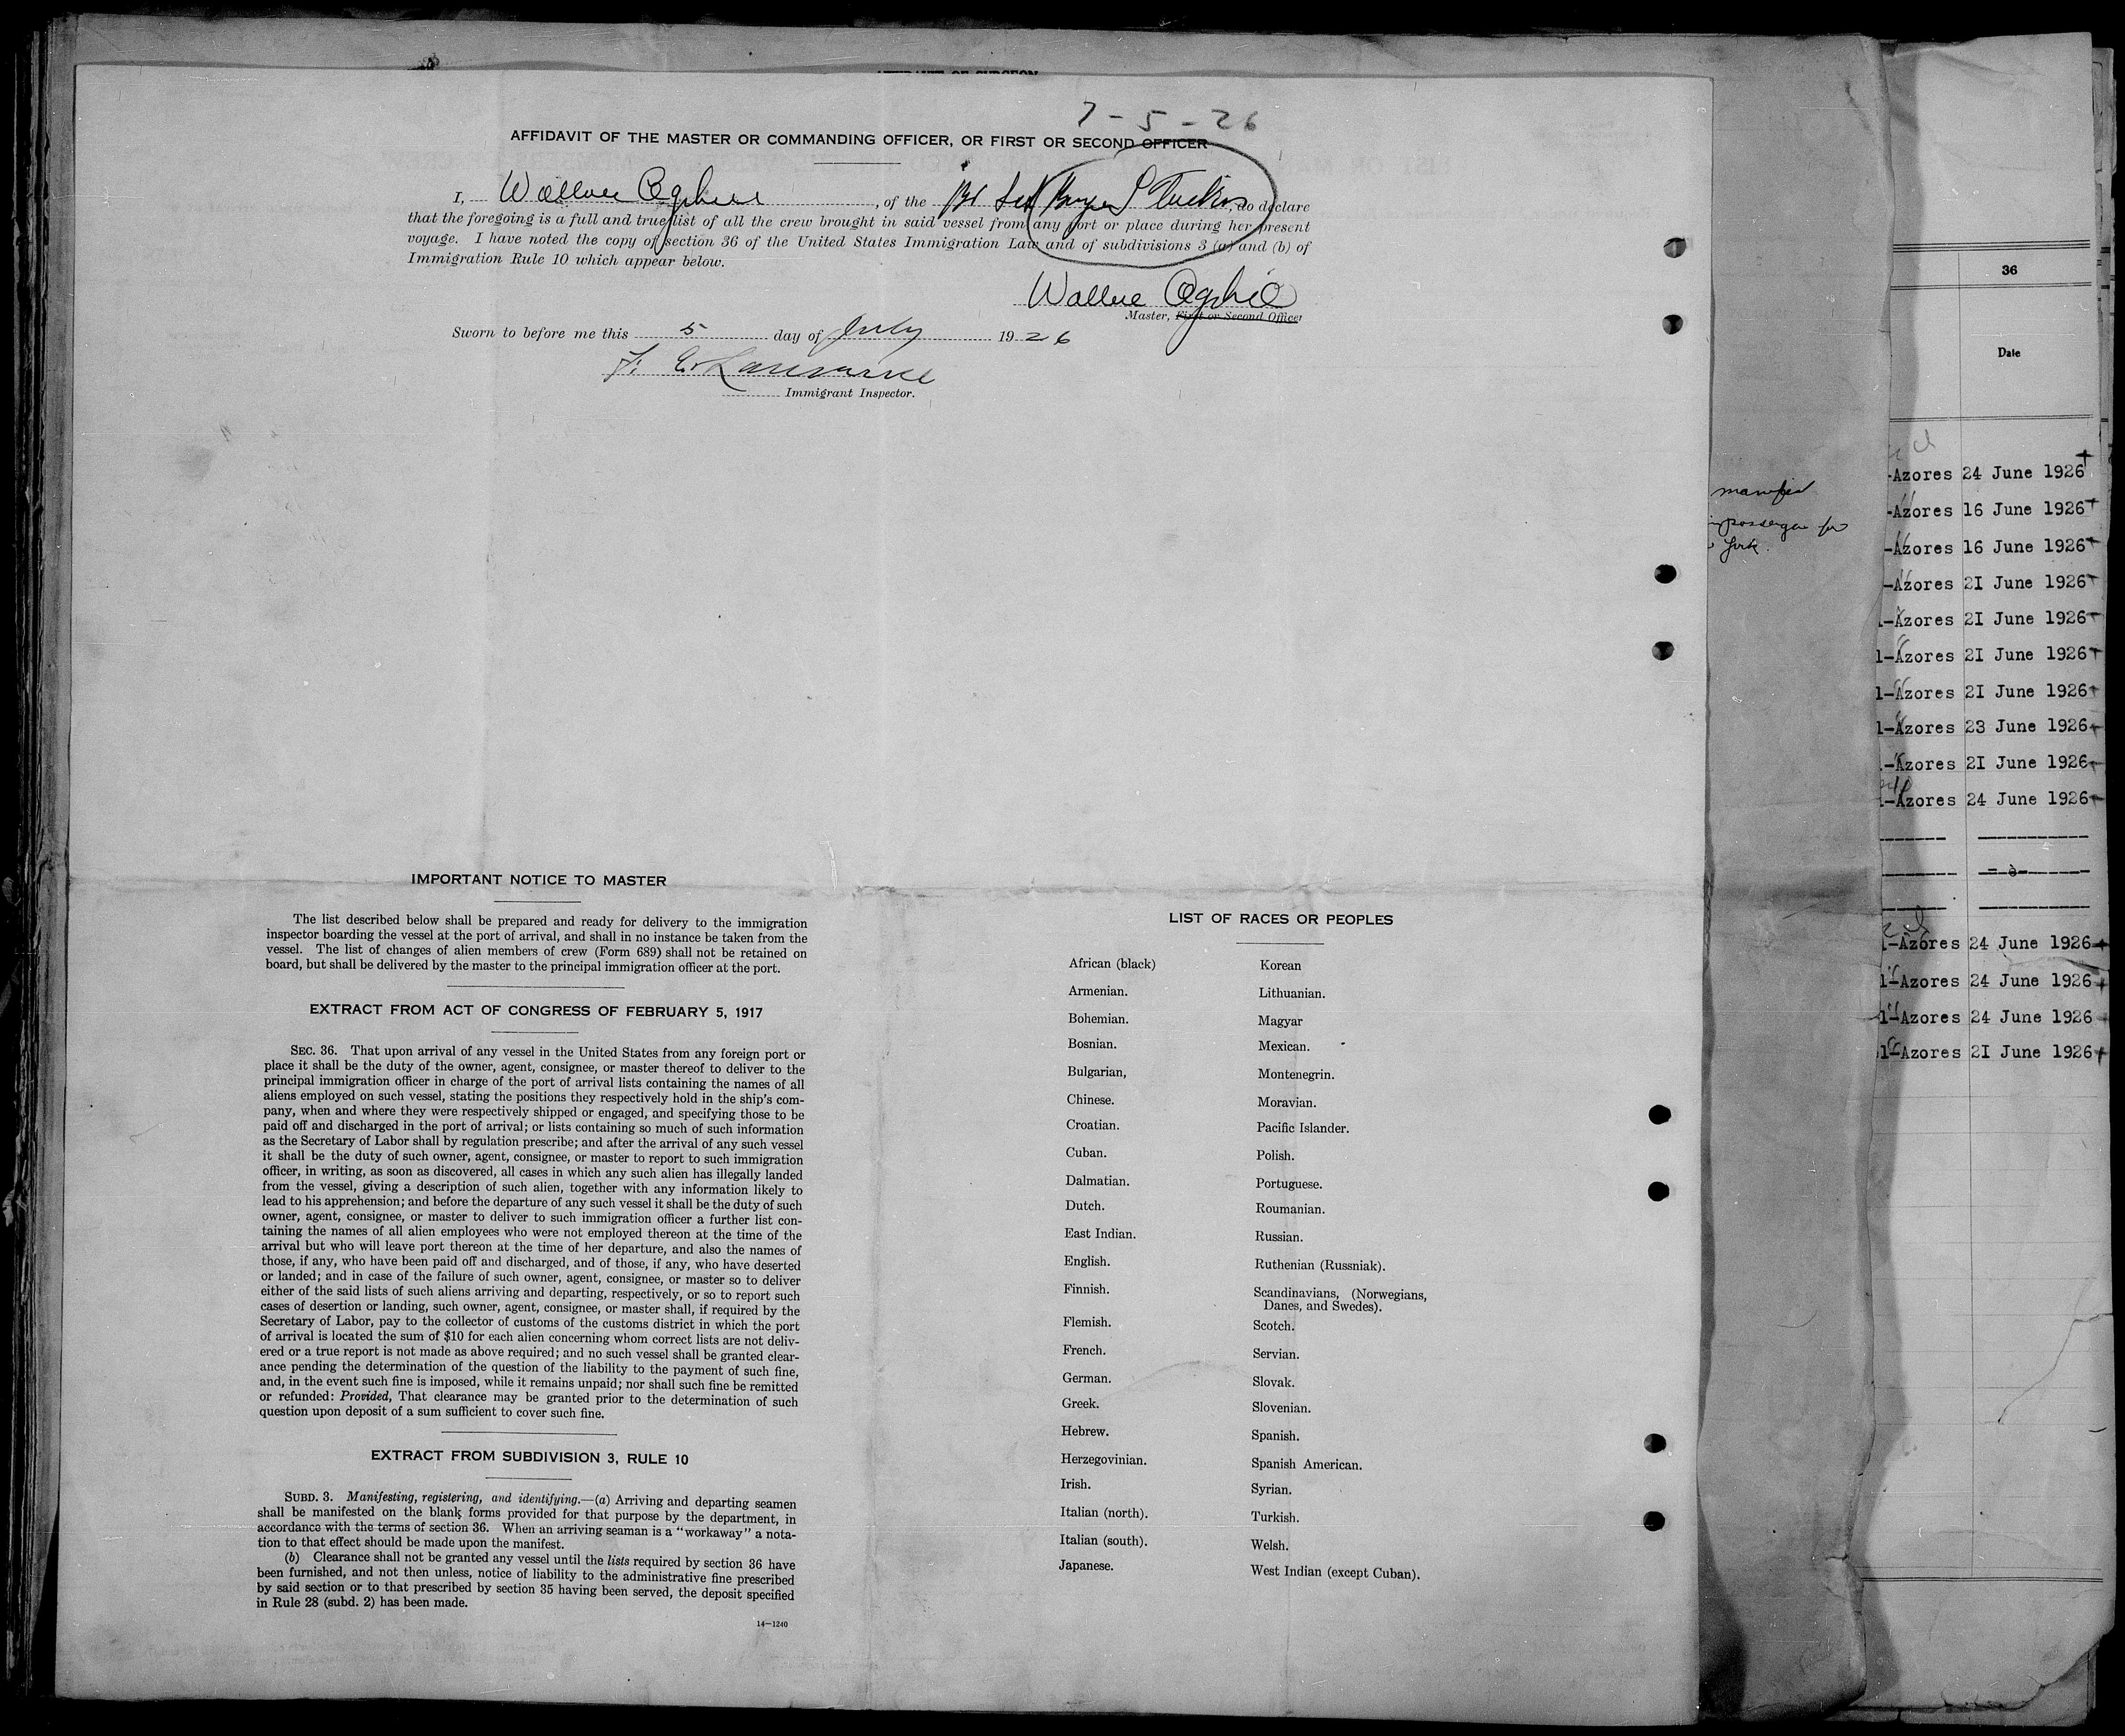 7-5-26
AFFIDAVIT OF THE MASTER OR COMMANDING OFFICER, OR FIRST OR SECOND OFFICER
I, Wallace, of the Br Sch, do declare
that the foregoing is a full and true list of all the crew brought in said vessel from any port or place during her present
voyage. I have noted the copy of section 36 of the United States Immigration Law and of subdivisions 3 (a) and (b) of
Immigration Rule 10 which appear below.
Wallace
Master, First or Second Officer
Sworn to before me this 5 day of July 1926
F. E.
Immigrant Inspector.
IMPORTANT NOTICE TO MASTER
The list described below shall be prepared and ready for delivery to the immigration
inspector boarding the vessel at the port of arrival, and shall in no instance be taken from the
vessel. The list of changes of alien members of crew (Form 689) shall not be retained on
board, but shall be delivered by the master to the principal immigration officer at the port.
EXTRACT FROM ACT OF CONGRESS OF FEBRUARY 5, 1917
SEC. 36. That upon arrival of any vessel in the United States from any foreign port or
place it shall be the duty of the owner, agent, consignee, or master thereof to deliver to the
principal immigration officer in charge of the port of arrival lists containing the names of all
aliens employed on such vessel, stating the positions they respectively hold in the ship's com-
pany, when and where they were respectively shipped or engaged, and specifying those to be
paid off and discharged in the port of arrival; or lists containing so much of such information
as the Secretary of Labor shall by regulation prescribe; and after the arrival of any such vessel
it shall be the duty of such owner, agent, consignee, or master to report to such immigration
officer, in writing, as soon as discovered, all cases in which any such alien has illegally landed
from the vessel, giving a description of such alien, together with any information likely to
lead to his apprehension; and before the departure of any such vessel it shall be the duty of such
owner, agent, consignee, or master to deliver to such immigration officer a further list con-
taining the names of all alien employees who were not employed thereon at the time of the
arrival but who will leave port thereon at the time of her departure, and also the names of
those, if any, who have been paid off and discharged, and of those, if any, who have deserted
or landed; and in case of the failure of such owner, agent, consignee, or master so to deliver
either of the said lists of such aliens arriving and departing, respectively, or so to report such
cases of desertion or landing, such owner, agent, consignee, or master shall, if required by the
Secretary of Labor, pay to the collector of customs of the customs district in which the port
of arrival is located the sum of $10 for each alien concerning whom correct lists are not deliv-
ered or a true report is not made as above required; and no such vessel shall be granted clear-
ance pending the determination of the question of the liability to the payment of such fine,
and, in the event such fine is imposed, while it remains unpaid; nor shall such fine be remitted
or refunded: Provided, That clearance may be granted prior to the determination of such
question upon deposit of a sum sufficient to cover such fine.
EXTRACT FROM SUBDIVISION 3, RULE 10
SUBD. 3. Manifesting, registering, and identifying.—(a) Arriving and departing seamen
shall be manifested on the blank forms provided for that purpose by the department, in
accordance with the terms of section 36. When an arriving seaman is a "workaway" a nota-
tion to that effect should be made upon the manifest.
(b) Clearance shall not be granted any vessel until the lists required by section 36 have
been furnished, and not then unless, notice of liability to the administrative fine prescribed
by said section or to that prescribed by section 35 having been served, the deposit specified
in Rule 28 (subd. 2) has been made.
14—1240
LIST OF RACES OR PEOPLES
African (black)
Armenian.
Bohemian.
Bosnian.
Bulgarian,
Chinese.
Croatian.
Cuban.
Dalmatian.
Dutch.
East Indian.
English.
Finnish.
Flemish.
French.
German.
Greek.
Hebrew.
Herzegovinian.
Irish.
Italian (north).
Italian (south).
Japanese.
Korean
Lithuanian.
Magyar
Mexican.
Montenegrin.
Moravian.
Pacific Islander.
Polish.
Portuguese.
Roumanian.
Russian.
Ruthenian (Russniak).
Scandinavians, (Norwegians,
Danes, and Swedes).
Scotch.
Servian.
Slovak.
Slovenian.
Spanish.
Spanish American.
Syrian.
Turkish.
Welsh.
West Indian (except Cuban).
passenger for
York.
36
Date
-Azores 24 June 1926
-Azores 16 June 1926
-Azores 16 June 1926
-Azores 21 June 1926
-Azores 21 June 1926
l-Azores 21 June 1926
l-Azores 21 June 1926
l-Azores 23 June 1926
-Azores 21 June 1926
-Azores 24 June 1926
-Azores 24 June 1926
l-Azores 24 June 1926
l-Azores 24 June 1926
l-Azores 21 June 1926